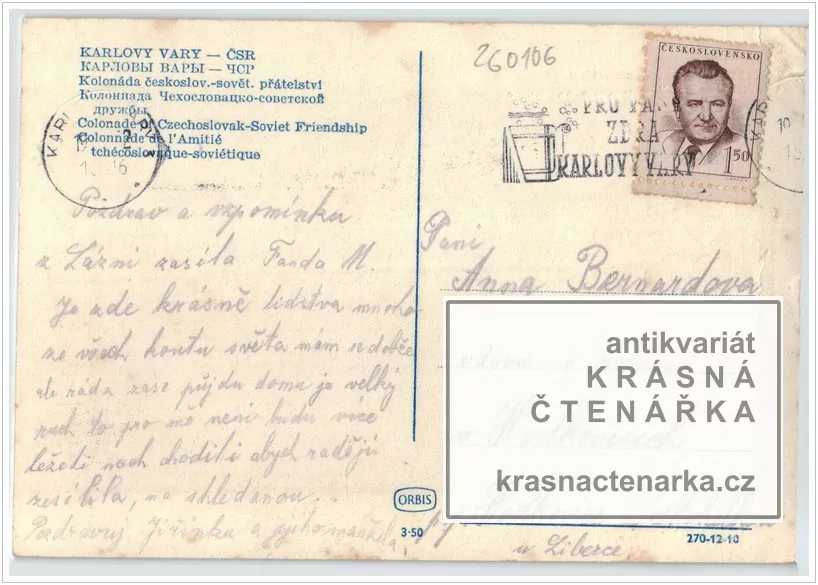 KARLOVY VARY — ČSR
КАРЛОВЫ ВАРЫ — ЧСР
Kolonáda českoslov.-sovět. přátelství
Колоннада Чехословацко-советской
дружбы
Colonade of Czechoslovak-Soviet Friendship
Colonnade de l'Amitié
tchécoslovaque-soviétique
260106
ČESKOSLOVENSKO
1 50
PRO VAŠE
ZDRA
KARLOVY VARY
KAR
Pozdrav a vzpomínku
z Lázní zasílá Fanda M.
Je zde krásně lidstva mnoho
ze všech koutu světa mám se dobře
ale ráda zase půjdu domu je velký
ruch to pro mě není budu více
ležeti než choditi abych raději
zesílila, na shledanou..
Pozdravuj Jiřinku a jejího manžela
Paní
Anna Bernardová
antikvariát
KRÁSNÁ
ČTENÁŘKA
krasnactenarka.cz
u Liberce
ORBIS
3-50
270-12-10